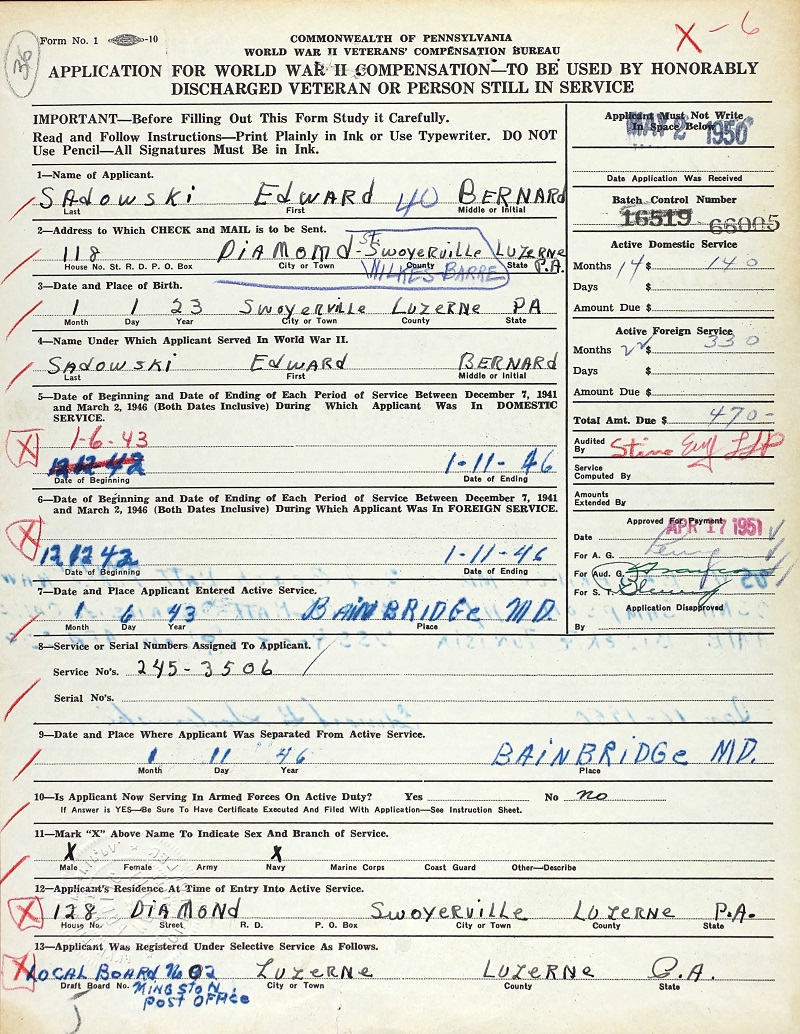 36
Form No. 1 -10
X-6
COMMONWEALTH OF PENNSYLVANIA
WORLD WAR II VETERANS' COMPENSATION BUREAU
APPLICATION FOR WORLD WAR II COMPENSATION—TO BE USED BY HONORABLY
DISCHARGED VETERAN OR PERSON STILL IN SERVICE
IMPORTANT—Before Filling Out This Form Study it Carefully.
Read and Follow Instructions—Print Plainly in Ink or Use Typewriter. DO NOT
Use Pencil—All Signatures Must Be in Ink.
Applicant Must Not Write
In Space Below
MAY 2 1950
Date Application Was Received
Batch Control Number
16519 66005
1—Name of Applicant.
SADOWSKI EDWARD 40 BERNARD
Last First Middle or Initial
2—Address to Which CHECK and MAIL is to be Sent.
118 DIAMOND St. SWOYERVILLE LUZERNE P.A.
House No. St. R. D. P. O. Box City or Town County State
WILKES BARRE
3—Date and Place of Birth.
1 1 23 SWOYERVILLE LUZERNE PA
Month Day Year City or Town County State
4—Name Under Which Applicant Served In World War II.
SADOWSKI EDWARD BERNARD
Last First Middle or Initial
5—Date of Beginning and Date of Ending of Each Period of Service Between December 7, 1941
and March 2, 1946 (Both Dates Inclusive) During Which Applicant Was In DOMESTIC
SERVICE.
X 1-6-43
12 12 42 1-11-46
Date of Beginning Date of Ending
6—Date of Beginning and Date of Ending of Each Period of Service Between December 7, 1941
and March 2, 1946 (Both Dates Inclusive) During Which Applicant Was In FOREIGN SERVICE.
X 12 12 42 1-11-46
Date of Beginning Date of Ending
7—Date and Place Applicant Entered Active Service.
1 6 43 BAINBRIDGE MD.
Month Day Year Place
Active Domestic Service
Months 14 $ 140
Days $
Amount Due $
Active Foreign Service
Months 22 $ 330
Days $
Amount Due $
Total Amt. Due $ 470-
Audited
By
Service
Computed By
Amounts
Extended By
Approved For Payment
APR 17 1951
Date
For A. G.
For Aud. G.
For S. T.
Application Disapproved
By
8—Service or Serial Numbers Assigned To Applicant.
Service No's. 245-3506
Serial No's.
9—Date and Place Where Applicant Was Separated From Active Service.
1 11 46 BAINBRIDGE MD.
Month Day Year Place
10—Is Applicant Now Serving In Armed Forces On Active Duty? Yes No no
If Answer is YES—Be Sure To Have Certificate Executed And Filed With Application—See Instruction Sheet.
11—Mark "X" Above Name To Indicate Sex And Branch of Service.
X X
Male Female Army Navy Marine Corps Coast Guard Other—Describe
12—Applicant's Residence At Time of Entry Into Active Service.
X 128 DIAMOND SWOYERVILLE LUZERNE P.A.
House No. Street R. D. P. O. Box City or Town County State
13—Applicant Was Registered Under Selective Service As Follows.
X LOCAL BOARD No 02 LUZERNE LUZERNE P.A.
Draft Board No. City or Town County State
MINGSTON
POST OFFice